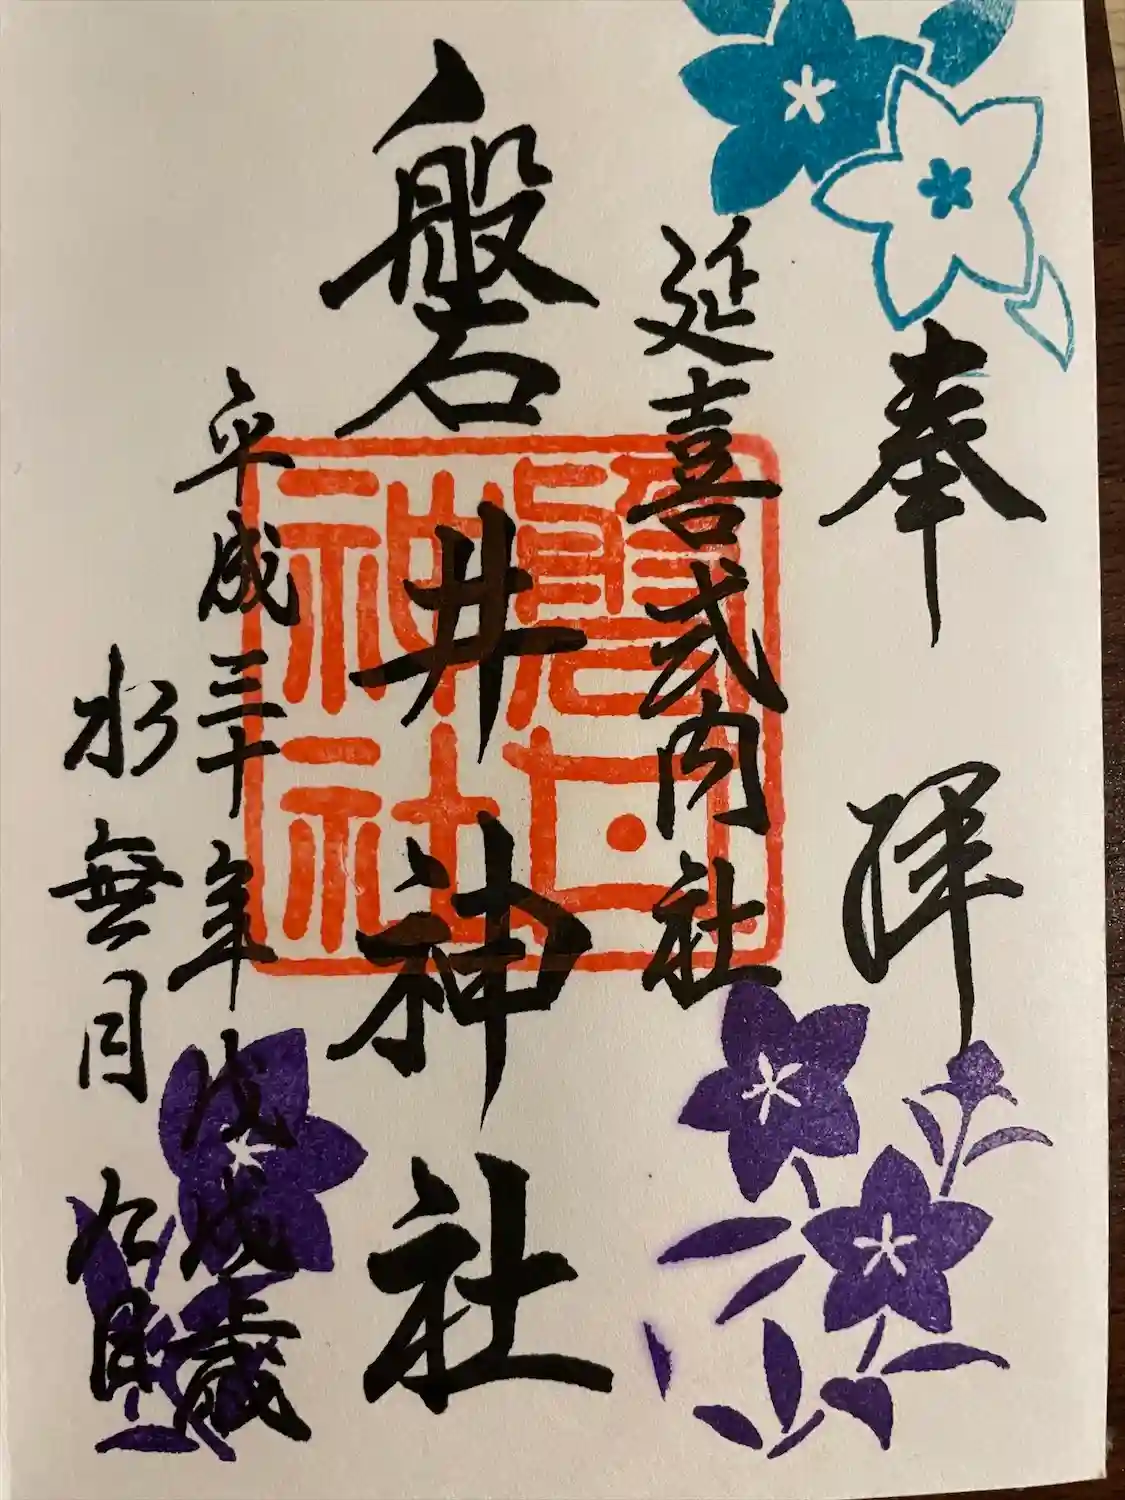 奉拝
延喜式内社
磐井神社
磐井
神社
平成三十年戊戌歳
水無月 九日